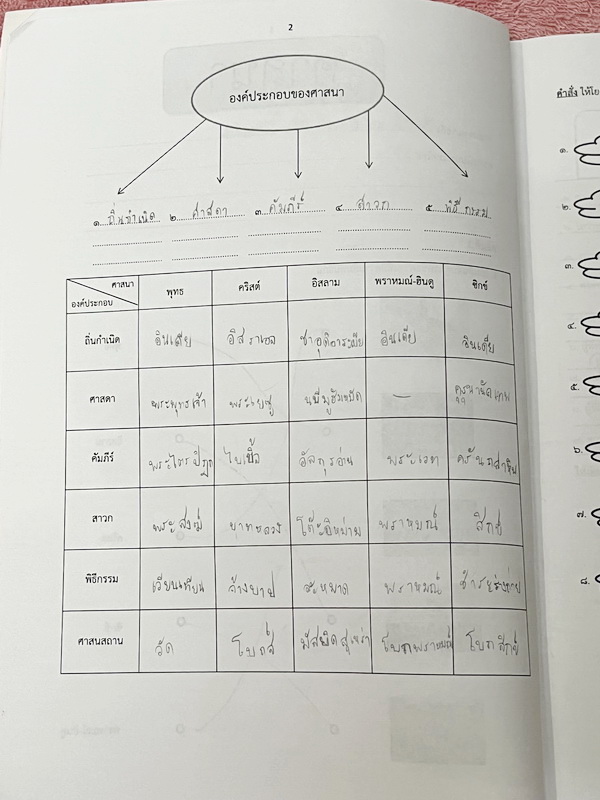 2
องค์ประกอบของศาสนา
๑. ถิ่นกำเนิด ๒. ศาสดา ๓. คัมภีร์ ๔. สาวก ๕. พิธีกรรม
ศาสนา
องค์ประกอบ
พุทธ คริสต์ อิสลาม พราหมณ์-ฮินดู ซิกข์
ถิ่นกำเนิด อินเดีย อิสราเอล ซาอุดิอาระเบีย อินเดีย อินเดีย
ศาสดา พระพุทธเจ้า พระเยซู นบีมูฮัมหมัด — คุรุนานัก
คัมภีร์ พระไตรปิฎก ไบเบิ้ล อัลกุรอ่าน พระเวท
สาวก พระสงฆ์ บาทหลวง โต๊ะอิหม่าม พราหมณ์ สิกข์
พิธีกรรม เวียนเทียน ล้างบาป ละหมาด พราหมณ์
ศาสนสถาน วัด โบถส์ มัสยิด สุเหร่า โบถพราหมณ์ โบถสิกข์
คำสั่ง ให้โย
๑.
๒.
๓.
๔.
๕.
๖.
๗.
๘.